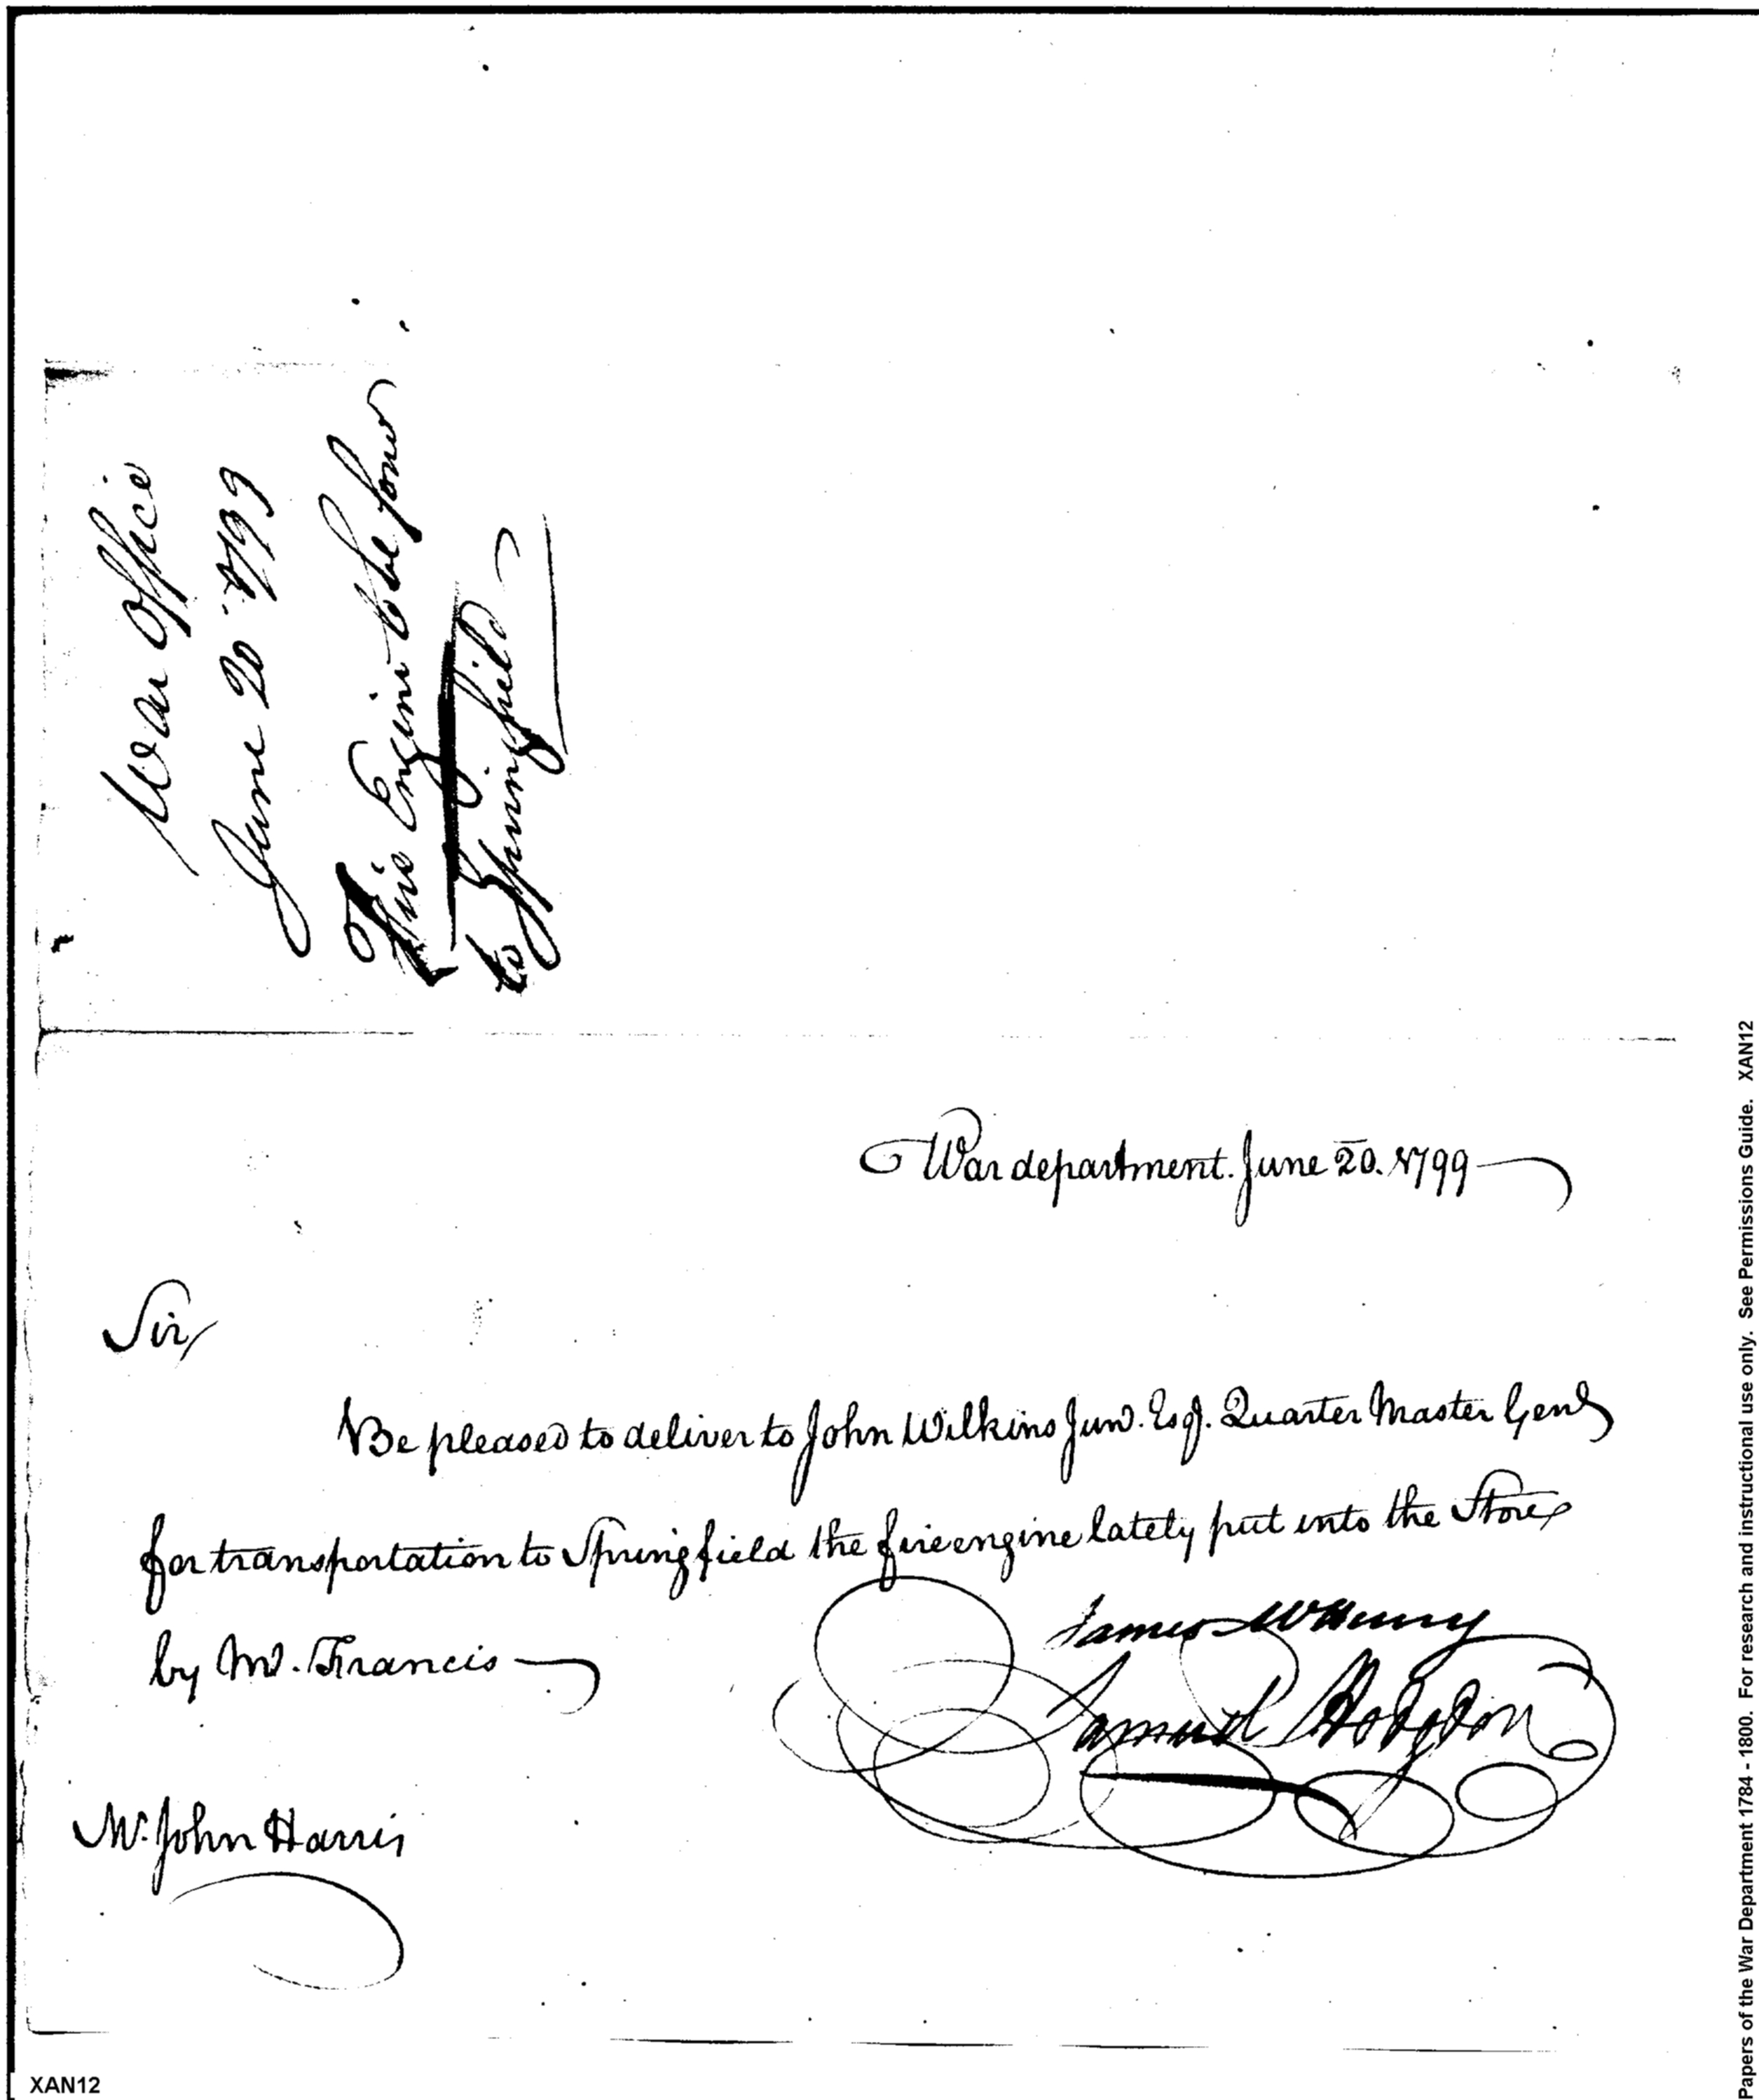 War Office
June 20 1799
Fire Engine to be forw
to Springfield
War department. June 20. 1799
Sir,
Be pleased to deliver to John Wilkins Junr. Esqr. Quarter Master Genl
for transportation to Springfield the fire engine lately put into the Store
by Mr. Francis
James McHenry
Samuel Hodgdon
Mr. John Harris
XAN12
Papers of the War Department 1784 - 1800. For research and instructional use only. See Permissions Guide. XAN12